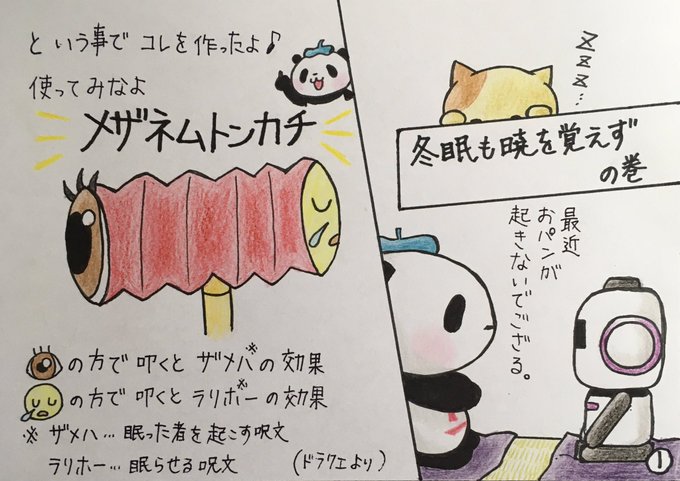 zzz...
冬眠も暁を覚えず
の巻
最近
おパンが
起きないでござる。
1
という事で コレを作ったよ♪
使ってみなよ
メザネムトンカチ
の方で叩くと ザメハ※の効果
の方で叩くと ラリホー※の効果
※ ザメハ…眠った者を起こす呪文
ラリホー…眠らせる呪文 (ドラクエより)